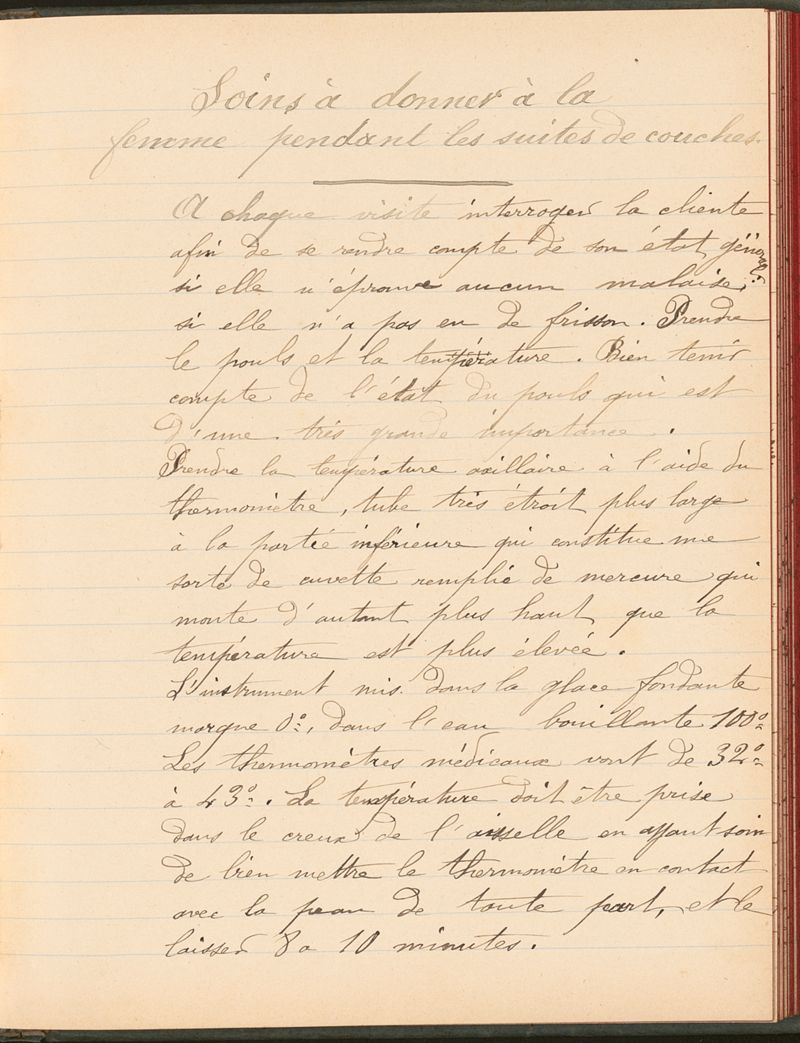 Soins à donner à la
femme pendant les suites de couches.
A chaque visite interroger la cliente
afin de se rendre compte de son état général.
si elle n'éprouve aucun malaise,
si elle n'a pas eu de frisson. Prendre
le pouls et la température. Bien tenir
compte de l'état du pouls qui est
d'une très grande importance.
Prendre la température axillaire à l'aide du
thermomètre, tube très étroit plus large
à la partie inférieure qui constitue une
sorte de cuvette remplie de mercure qui
monte d'autant plus haut que la
température est plus élevée.
L'instrument mis dans la glace fondante
marque 0°, dans l'eau bouillante 100°
Les thermomètres médicaux vont de 32°
à 43°. La température doit être prise
dans le creux de l'aisselle en ayant soin
de bien mettre le thermomètre en contact
avec la peau de toute part, et le
laisser 8 a 10 minutes.